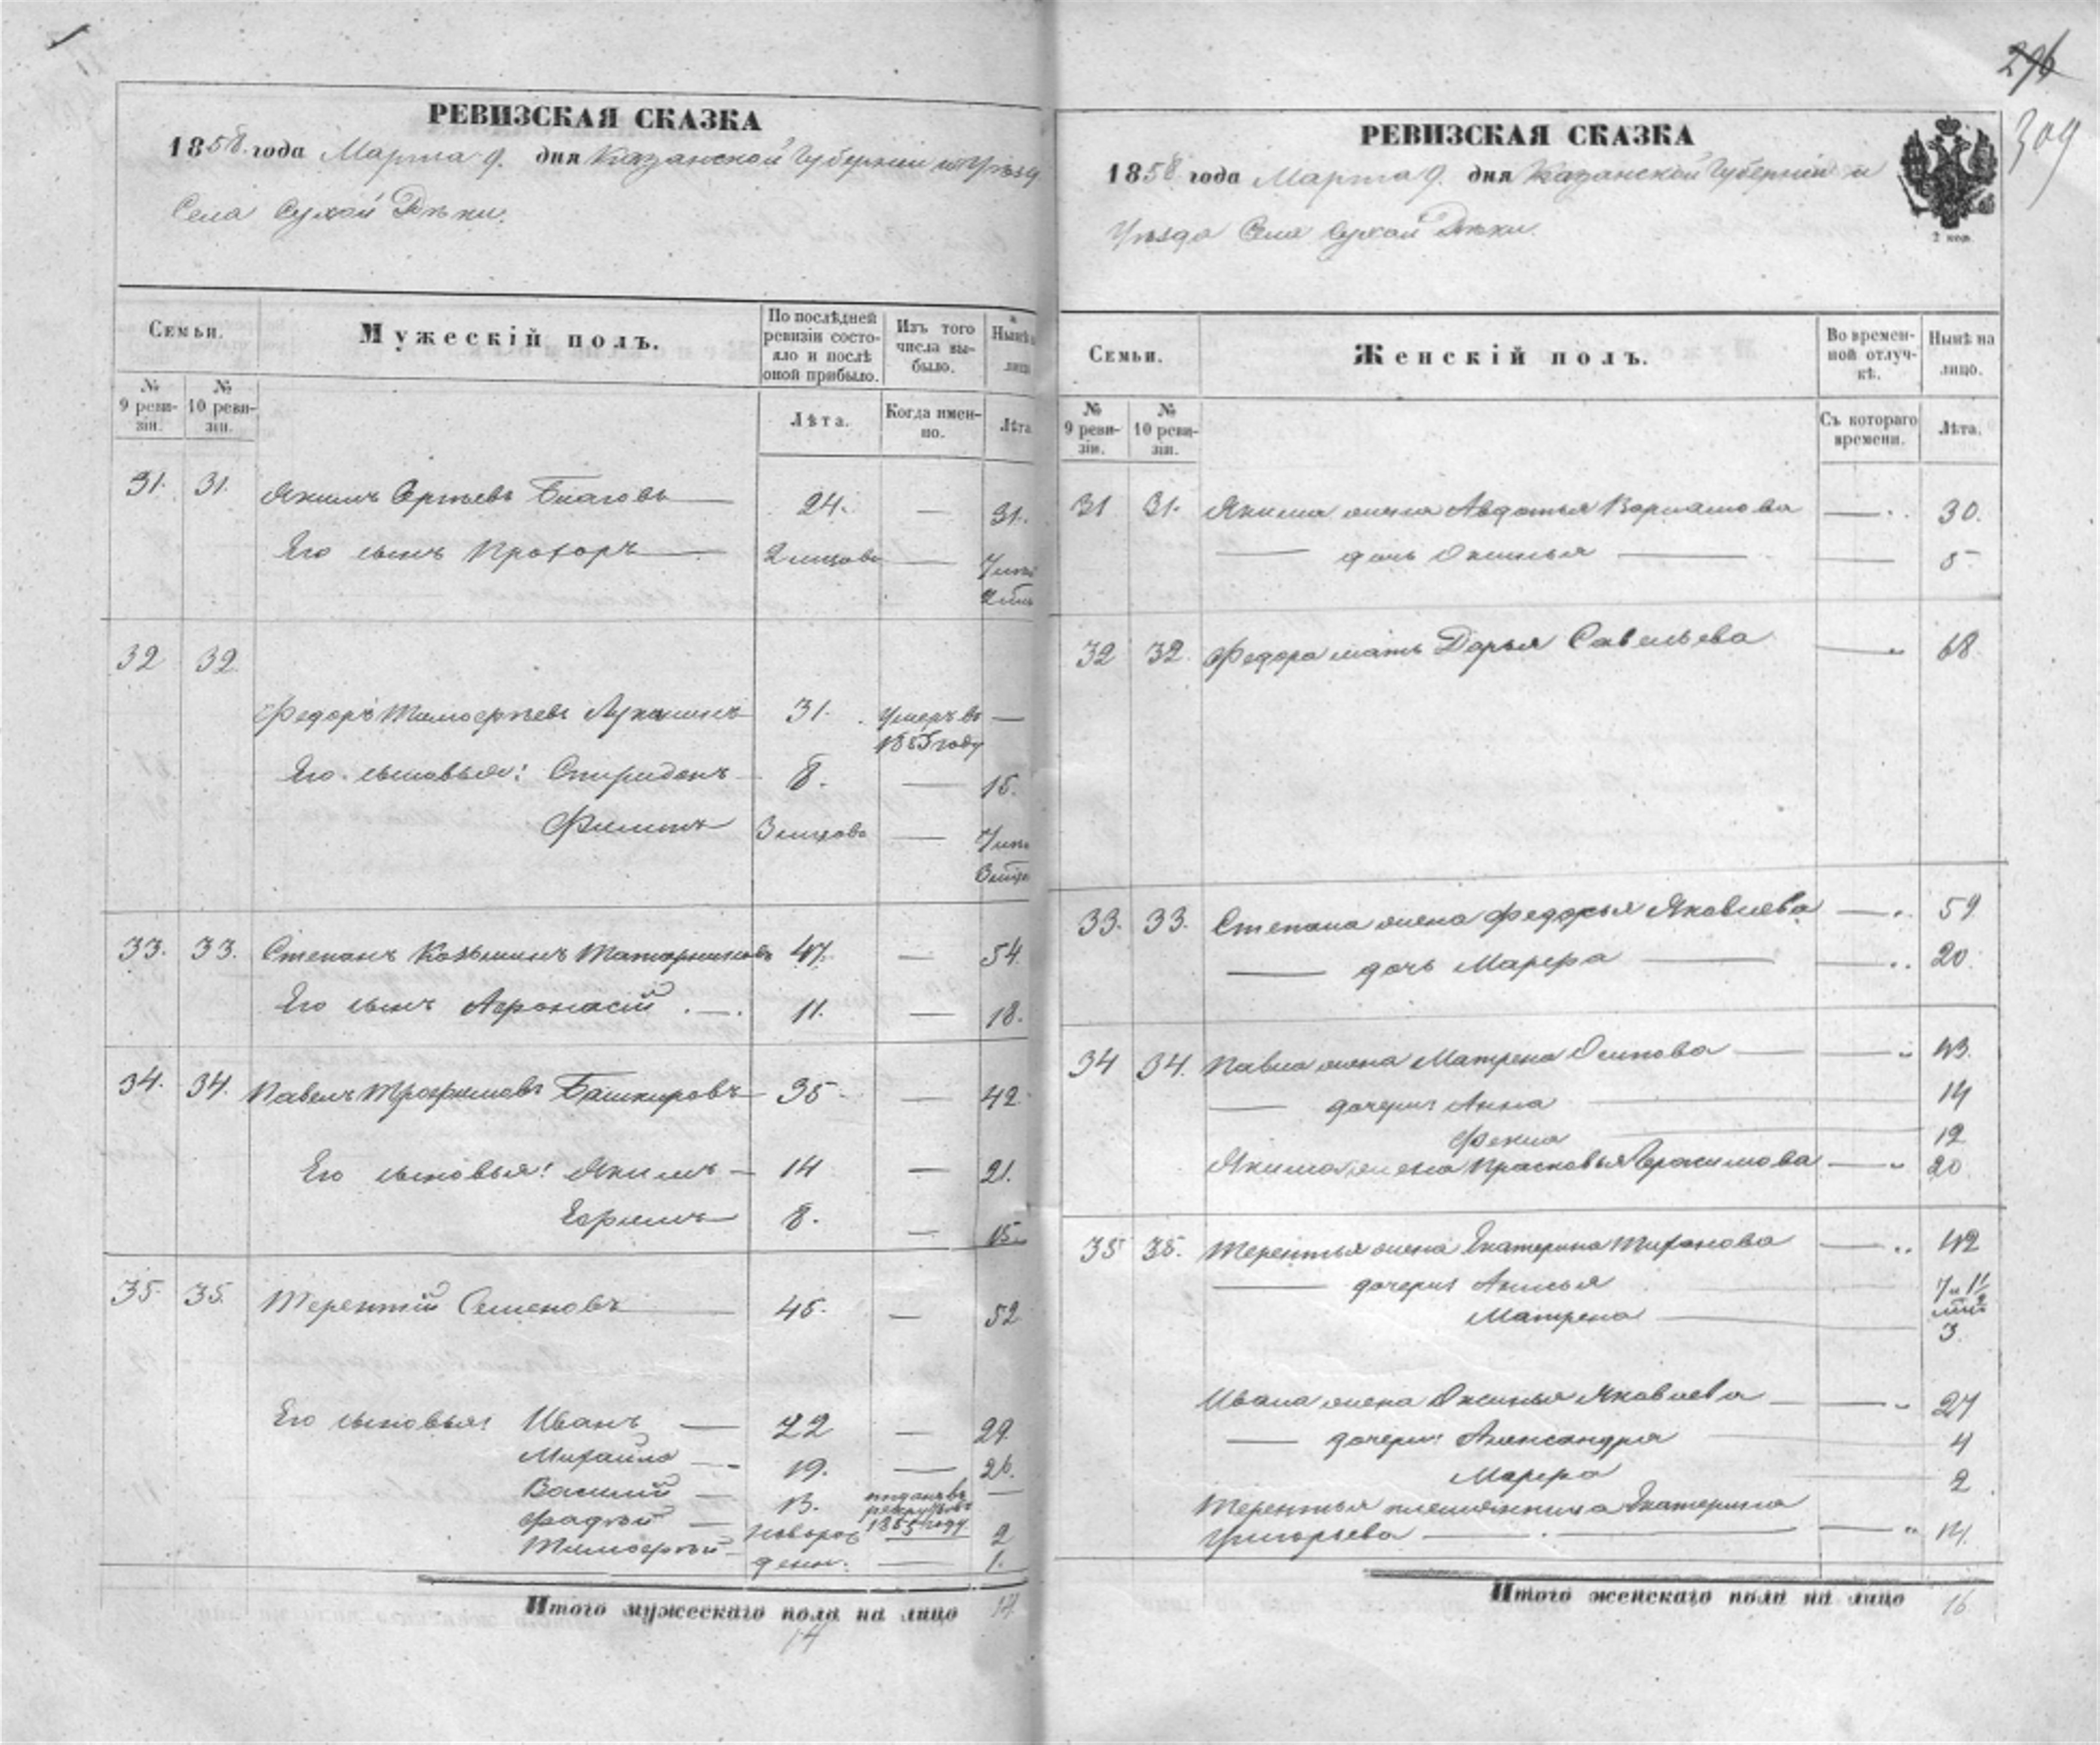 296
309
РЕВИЗСКАЯ СКАЗКА
1858 года Марта 9. дня Казанской Губернии и Уезд
Села Сухой Реки.
Семьи. Мужескій полъ. По послѣдней ревизіи состояло и послѣ оной прибыло. Изъ того числа выбыло. Нынѣ на лицо
№ 9 ревизіи. № 10 ревизіи. Лѣта. Когда именно. Лѣта
31. 31. Якимъ Сергѣевъ — 24. — 31.
Его сынъ Прохоръ — 2 мѣсяцовъ — 7 лѣтъ
2 мѣс
32 32
Федоръ Тимофѣевъ Лукинъ 31. Умеръ въ —
1855 году
Его сыновья: Спиридонъ 8. — 15.
Филипъ 3 мѣсяцовъ — 7 лѣтъ
3 мѣс
33. 33. Степанъ Козьминъ Татарниковъ 47. — 54.
Его сынъ Афонасій . — . 11. — 18.
34. 34. Павелъ Трофимовъ Башкировъ 35 — 42
Его сыновья: Якимъ — 14 — 21.
Ефимъ 8. — 15.
35 35. Терентій Семеновъ — 45. — 52
Его сыновья: Иванъ — 22 — 29.
Михайло — 19. — 26.
Василій — 13. отданъ въ рекруты въ 1855 году —
Фадѣй — новорож 2
Тимофѣй — денн. — 1.
Итого мужескаго пола на лицо 14
14
РЕВИЗСКАЯ СКАЗКА
1858 года Марта 9. дня Казанской Губерніи и
Уезда Села Сухой Реки.
2 коп.
Семьи. Женскій полъ. Во временной отлучкѣ. Нынѣ на лицо.
№ 9 ревизіи. № 10 ревизіи. Съ котораго времени. Лѣта.
31 31. Якима жена Авдотья Варламова — 30.
— дочь Оксинья — — 5
32 32. Федора мать Дарья Савельева — 68
33. 33. Степана жена Федосья Яковлева — 59
— дочь Марфа — — 20
34 34. Павла жена Матрена Осипова — — 43.
— дочери: Анна — 14
Фекла — 12
Якима жена Прасковья Герасимова — 20
35 35. Терентья жена Екатерина Тиханова — 42
— дочери: Анисья 7 и 1/2
Матрена — 3.
Ивана жена Оксинья Яковлева — — 27
— дочери: Александра 4
Марфа 2
Терентья племянница Екатерина
Григорьева — . — — 14.
Итого женскаго пола на лицо 16